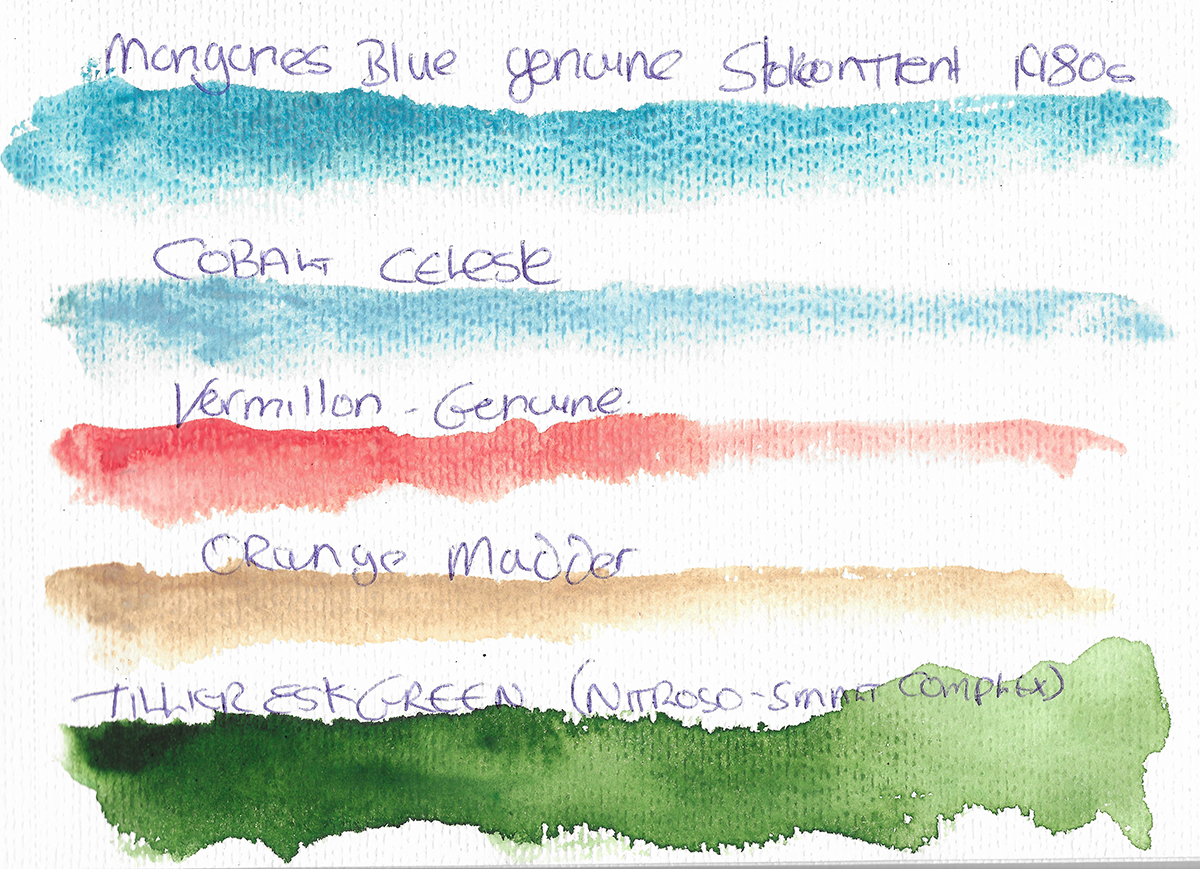 Manganes Blue genuine 1980s
COBALT CELESTE
Vermillon - Genuine
ORange Madder
GREEN (NITROSO-SMALT COMPLEX)